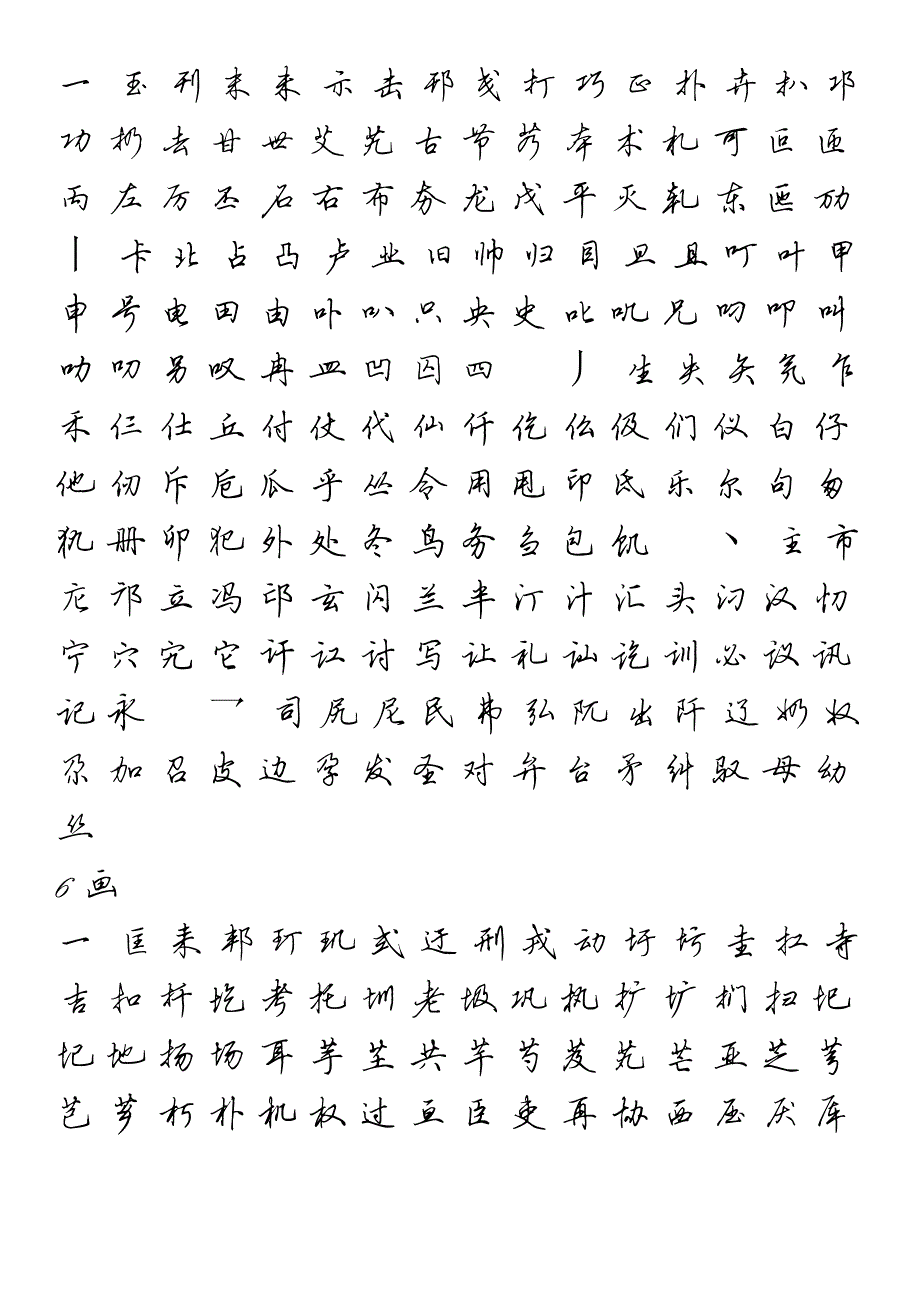 一 玉 刊 末 未 示 击 邗 戋 打 巧 正 扑 卉 扒 邛
功 扔 去 甘 世 艾 艽 古 节 艿 本 术 札 可 叵 匝
丙 左 厉 丕 石 右 布 夯 龙 戊 平 灭 轧 东 匜 劢
丨 卡 北 占 凸 卢 业 旧 帅 归 目 旦 且 叮 叶 甲
申 号 电 田 由 卟 叭 只 央 史 叱 叽 兄 叼 叩 叫
叻 叨 另 叹 冉 皿 凹 囚 四 丿 生 失 矢 氕 乍
禾 仨 仕 丘 付 仗 代 仙 仟 仡 仫 伋 们 仪 白 仔
他 仞 斥 卮 瓜 乎 丛 令 用 甩 印 氐 乐 尔 句 匆
犰 册 卯 犯 外 处 冬 鸟 务 刍 包 饥 丶 主 市
庀 邝 立 冯 邙 玄 闪 兰 半 汀 汁 汇 头 汈 汉 忉
宁 穴 宄 它 讦 讧 讨 写 让 礼 讪 讫 训 必 议 讯
记 永 乛 司 尻 尼 民 弗 弘 阮 出 阡 辽 奶 奴
尕 加 召 皮 边 孕 发 圣 对 弁 台 矛 纠 驭 母 幼
丝
6画
一 匡 耒 邦 玎 玑 式 迂 刑 戎 动 圩 圬 圭 扛 寺
吉 扣 扦 圪 考 托 圳 老 圾 巩 执 扩 圹 扪 扫 圯
圮 地 扬 场 耳 芋 芏 共 芊 芍 芨 芄 芒 亚 芝 芎
芑 芗 朽 朴 机 权 过 亘 臣 吏 再 协 西 压 厌 厍